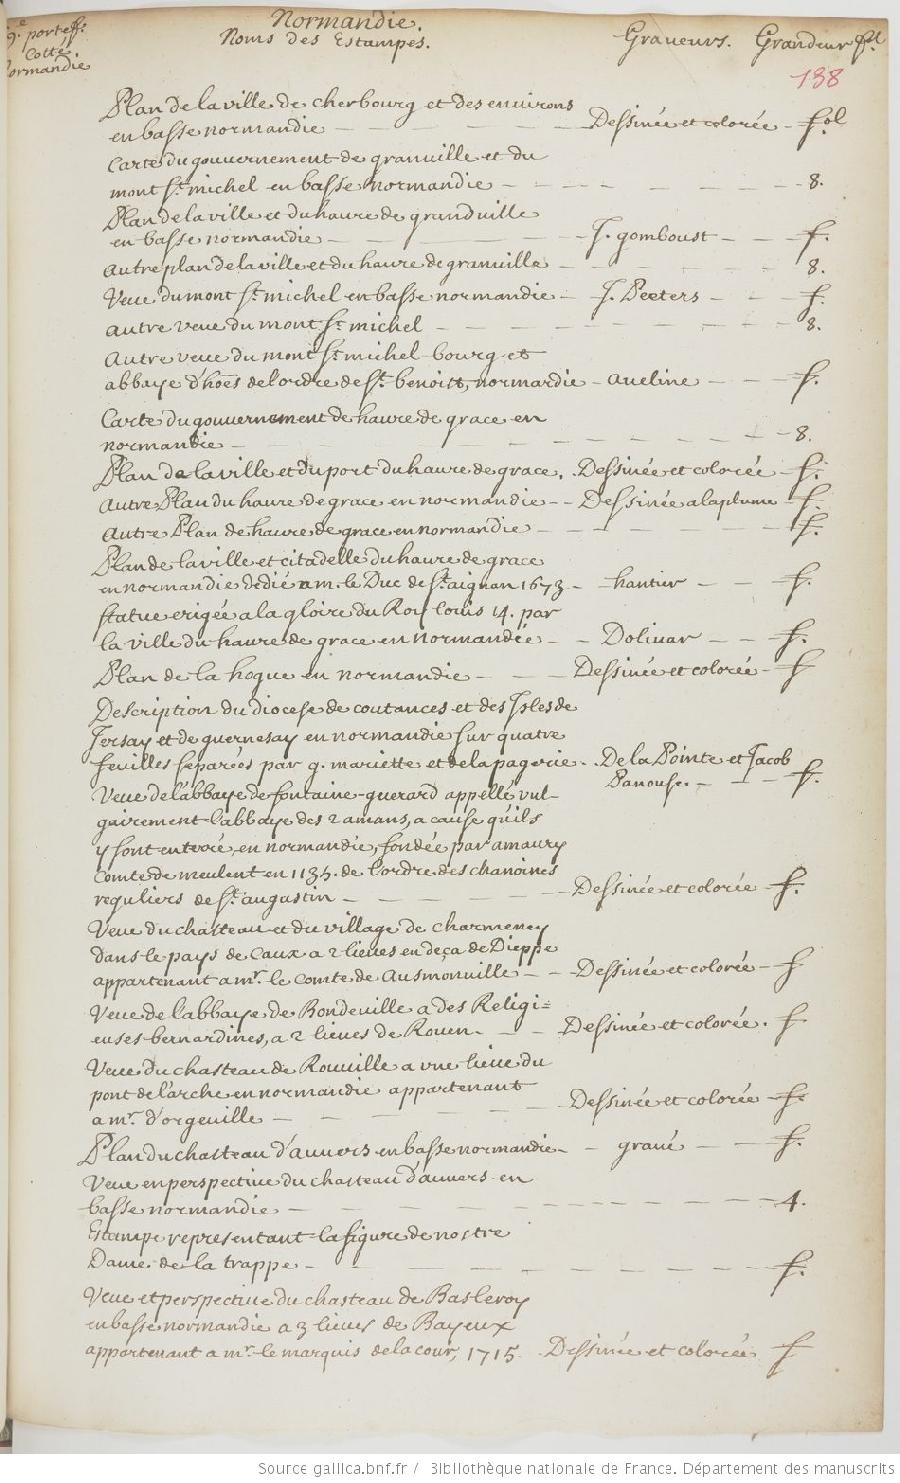 Normandie.
9.e porteff. Noms des Estampes. Graveurs. Grandeur
Cotté.
normandie
138
Plan de la ville de cherbourg et des environs
en basse normandie — Dessinée et colorée — fol
Carte du gouvernement de granville et du
mont St. michel en basse normandie — 8.
Plan de la ville et du havre de grandville
en basse normandie — J. gomboust — f.
autre plan de la ville et du havre de granville — 8.
Veue du mont St. michel en basse normandie — J. Peeters — f.
autre veue du mont St. michel — 8.
Autre veue du mont St. michel bourg et
abbaye d'hoes de l'ordre de St. benoist, normardie — aveline — f.
Carte du gouvernement de havre de grace en
normandie — 8.
Plan de la ville et du port du havre de grace. Dessinée et colorée — f.
autre Plan du havre de grace en normandie — Dessinée a la plume — f.
autre Plan de havre de grace en normandie — f.
Plan de la ville et citadelle du havre de grace
en normandie dedié a m. le Duc de St. aignan 1673 — hantier — f.
statue erigée a la gloire du Roy Louis 14. par
la ville du havre de grace en normandie — Dolivar — f.
Plan de la hogue en normandie — Dessinée et colorée — f
Description du diocese de coutances et des Isles de
Jersay et de guernesay en normandie sur quatre
feuilles separées par g. mariette et de la pagerie. De la Pointe et Jacob
Panouse. — f.
Veue de l'abbaye de fontaine-guerard appellé vul-
gairement l'abbaye des 2 amans, a cause qu'ils
y sont enterré, en normandie, fondée par amaury
Comte de meulent en 1135. de l'ordre des chanoines
reguliers de St. augustin — Dessinée et colorée — f.
Veue du chasteau et du village de charmeney
dans le pays de Caux a 2 lieues en deça de Dieppe
appartenant a mr. le Comte de Ausmonville — Dessinée et colorée — f
Veue de l'abbaye de Bondeville a des Religi=
euses bernardines, a 2 lieues de Rouen — Dessinée et colorée. f
Veue du chasteau de Rouville a une lieue du
pont de l'arche en normandie appartenant
a mr. d'orgeville — Dessinée et colorée — f.
Plan du chasteau d'auvers en basse normandie — gravé — f.
Veue en perspective du chasteau d'auvers en
basse normandie — 4.
Estampe representant la figure de nostre
Dame de la trappe — f.
Veue et perspective du chasteau de Basleroy
en basse normandie a 3 lieues de Bayeux
appartenant a mr. le marquis de la cour, 1715. Dessinée et colorée f
Source gallica.bnf.fr / Bibliothèque nationale de France. Département des manuscrits